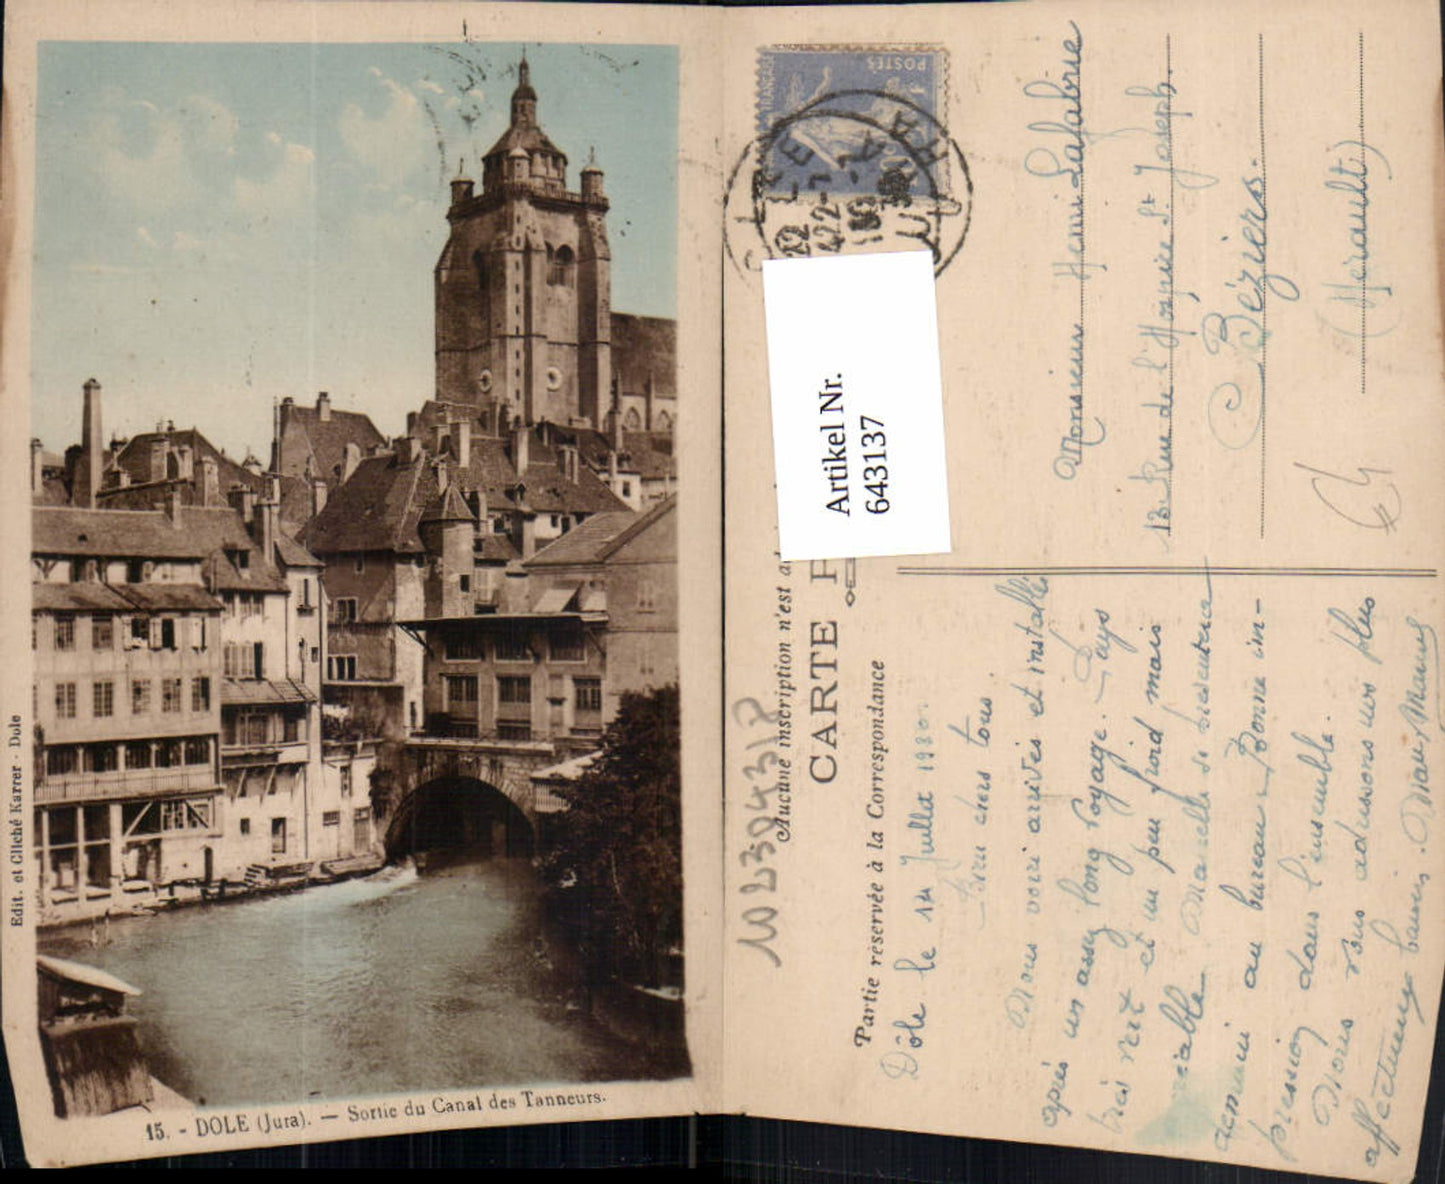 Edit. et Cliché Karrer - Dole
15. - DOLE (Jura). — Sortie du Canal des Tanneurs.
POSTES
Artikel Nr.
643137
Aucune inscription n'est
CARTE P
Partie réservée à la Correspondance
Monsieur Henri Lafabrie
13 Rue de l'Hospice St Joseph.
Béziers.
(Hérault)
Dôle le 14 Juillet 1930
Bien chers tous.
Nous voici arrivés et installés
après un assez long voyage. Pays
très vert et un peu froid mais
Marcelle se présentera
demain au bureau. Bonne im-
pression dans l'ensemble.
Nous vous adressons nos plus
affectueux baisers.